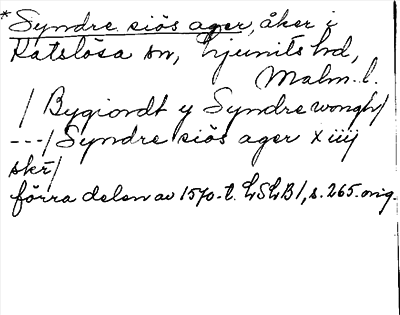 *Syndre siös ager, åker i
Katslösa sn, Ljunits hd,
Malm. l.
/ Bygiordt y Syndre wongh/
---/ Syndre siös ager x iiij
skr/
förra delen av 1570-t. LSLB 1, s. 265. orig.